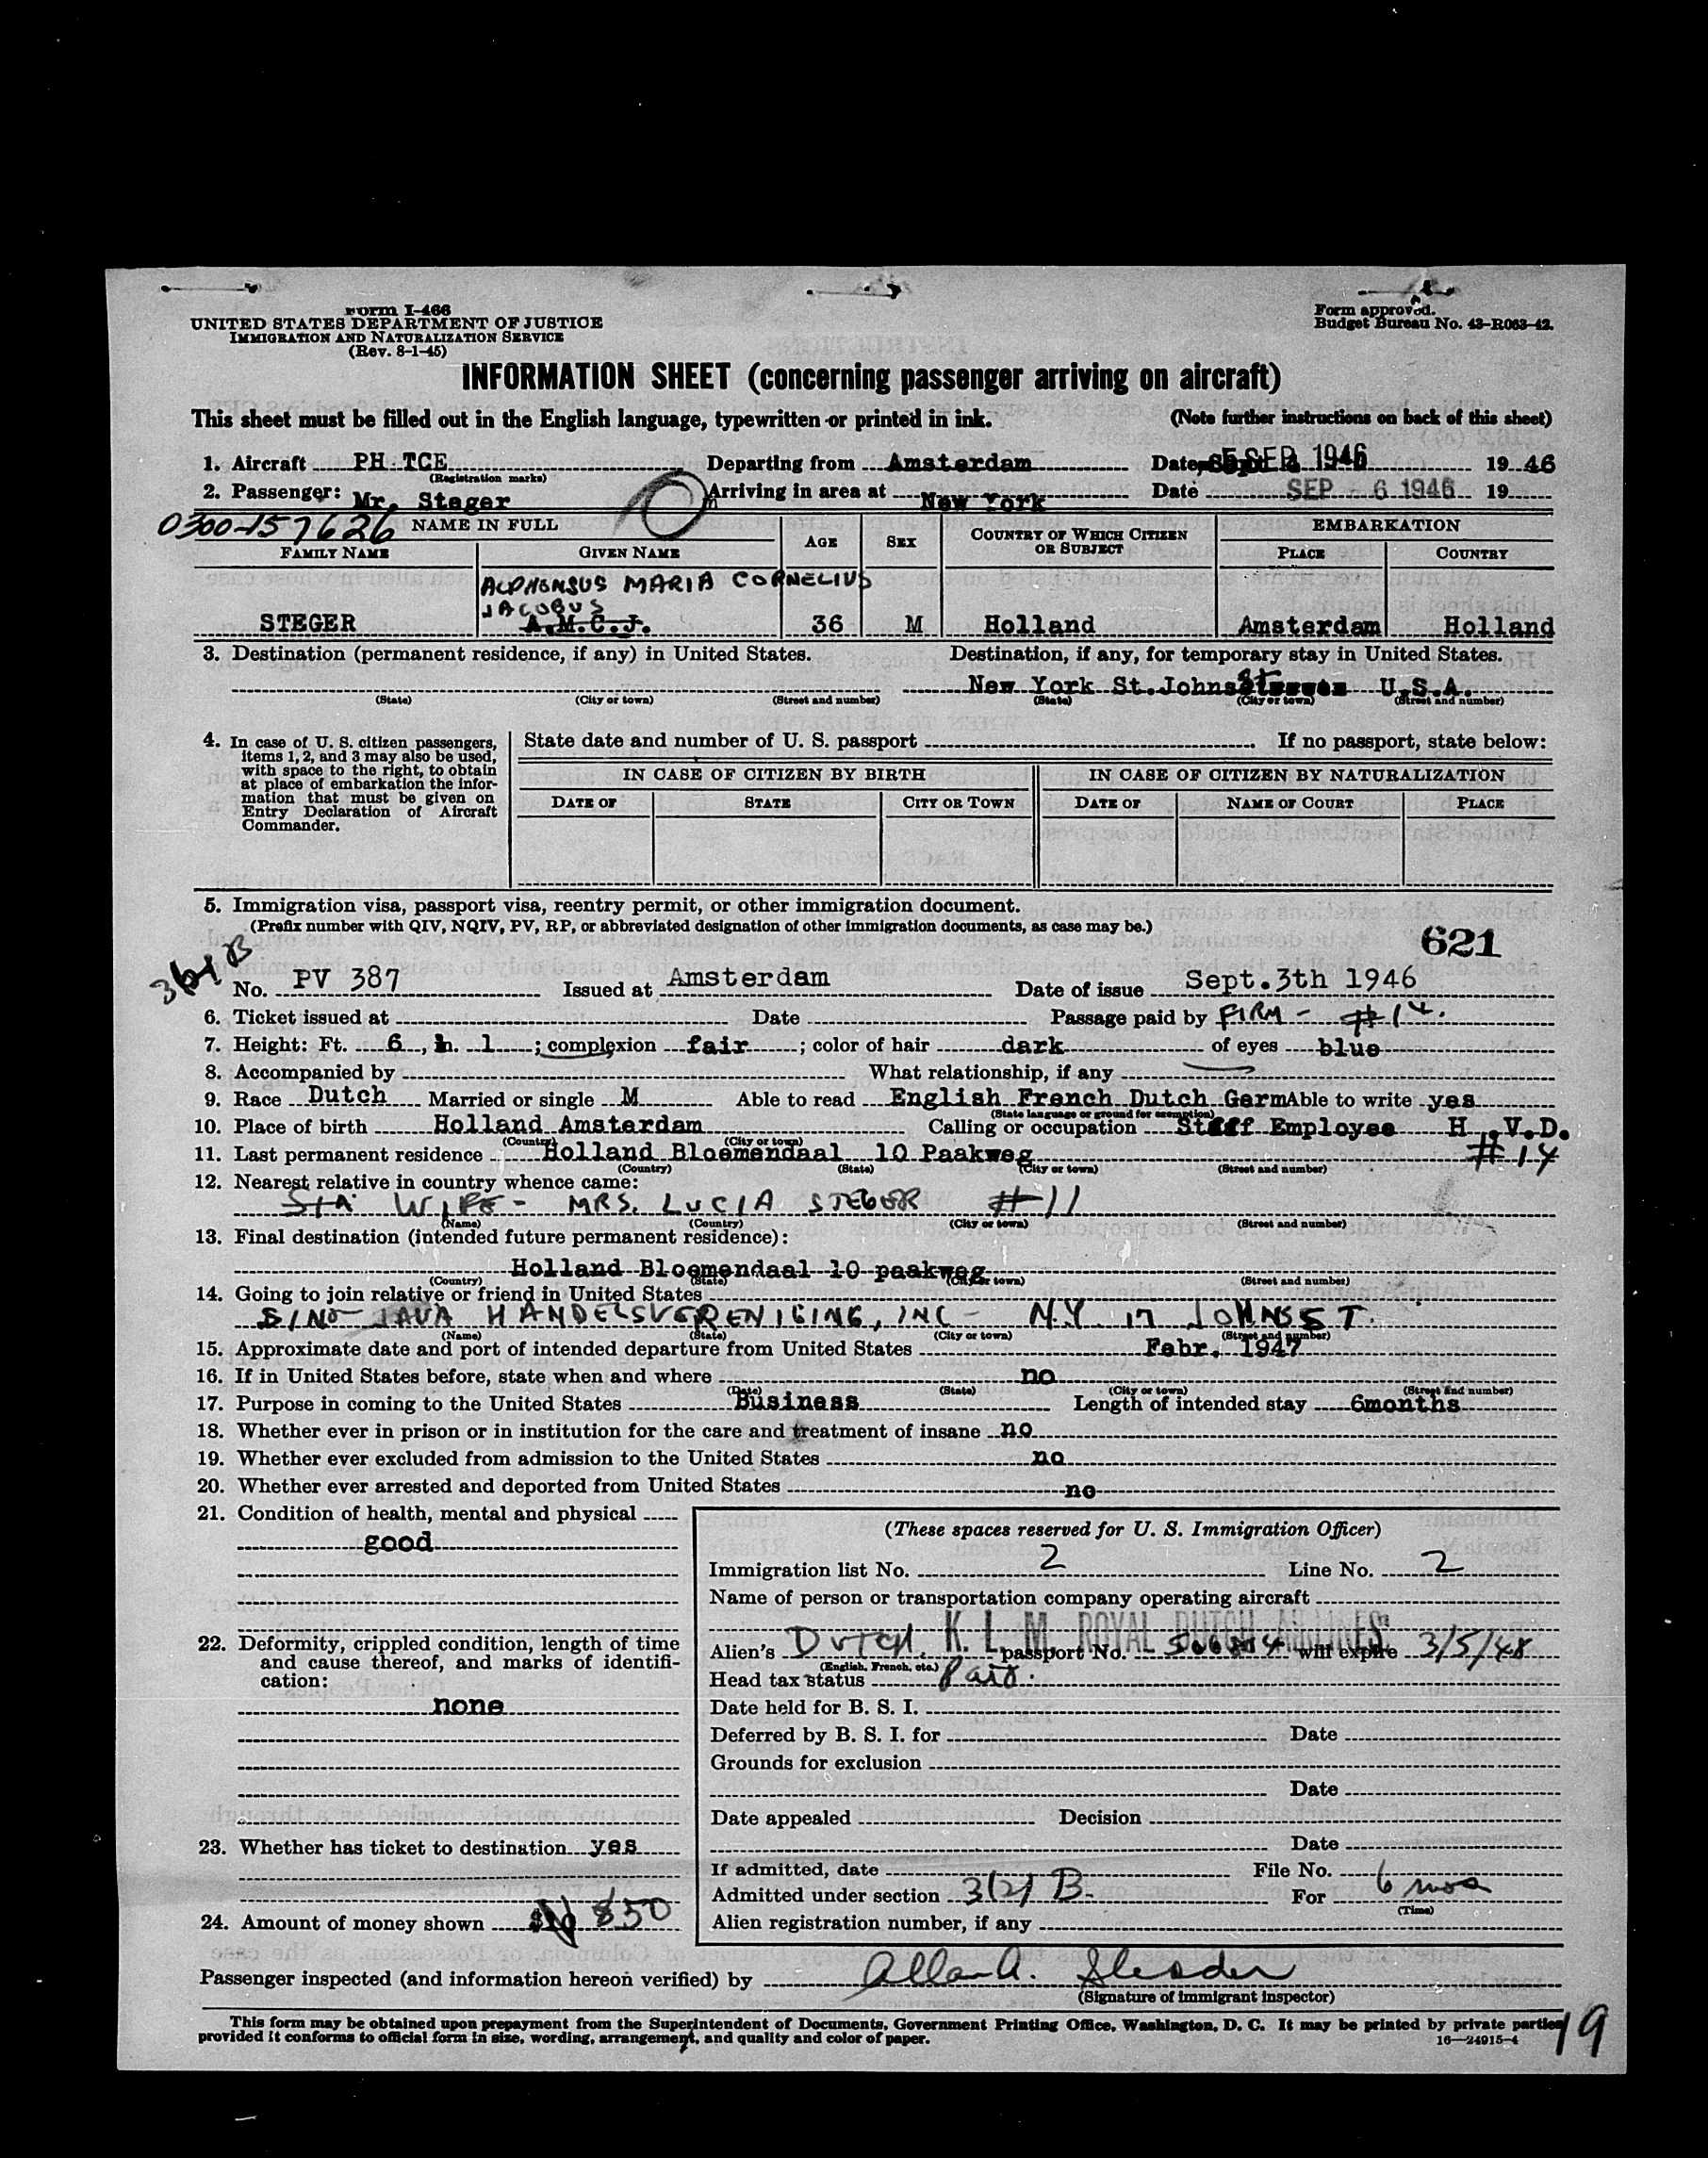 Form I-466
UNITED STATES DEPARTMENT OF JUSTICE
IMMIGRATION AND NATURALIZATION SERVICE
(Rev. 8-1-45)
Form approved.
Budget Bureau No. 43-R063-42.
INFORMATION SHEET (concerning passenger arriving on aircraft)
This sheet must be filled out in the English language, typewritten or printed in ink. (Note further instructions on back of this sheet)
1. Aircraft PH TCE Departing from Amsterdam Date 5 SEP 1946 19 46
(Registration marks)
2. Passenger: Mr. Steger Arriving in area at New York Date SEP - 6 1946 19
0300-157626 NAME IN FULL AGE SEX COUNTRY OF WHICH CITIZEN OR SUBJECT EMBARKATION
FAMILY NAME GIVEN NAME PLACE COUNTRY
ALPHONSUS MARIA CORNELIUS
JACOBUS
STEGER A.M.C.J. 36 M Holland Amsterdam Holland
3. Destination (permanent residence, if any) in United States. Destination, if any, for temporary stay in United States.
New York St. Johns St U.S.A.
(State) (City or town) (Street and number) (State) (City or town) (Street and number)
4. In case of U. S. citizen passengers, items 1, 2, and 3 may also be used, with space to the right, to obtain at place of embarkation the information that must be given on Entry Declaration of Aircraft Commander.
State date and number of U. S. passport If no passport, state below:
IN CASE OF CITIZEN BY BIRTH IN CASE OF CITIZEN BY NATURALIZATION
DATE OF STATE CITY OR TOWN DATE OF NAME OF COURT PLACE
5. Immigration visa, passport visa, reentry permit, or other immigration document.
(Prefix number with QIV, NQIV, PV, RP, or abbreviated designation of other immigration documents, as case may be.)
621
No. PV 387 Issued at Amsterdam Date of issue Sept.3th 1946
6. Ticket issued at Date Passage paid by FIRM - #14.
7. Height: Ft. 6, in. 1; complexion fair; color of hair dark of eyes blue
8. Accompanied by What relationship, if any
9. Race Dutch Married or single M Able to read English French Dutch Germ Able to write yes
(State language or ground for exemption)
10. Place of birth Holland Amsterdam Calling or occupation Staff Employee H .V.D.
(Country) (City or town)
11. Last permanent residence Holland Bloemendaal 10 Paakweg #14
(Country) (State) (City or town) (Street and number)
12. Nearest relative in country whence came:
WIFE - MRS. LUCIA STEGER #11
(Name) (Country) (City or town) (Street and number)
13. Final destination (intended future permanent residence):
Holland Bloemendaal 10 paakweg
(Country) (State) (City or town) (Street and number)
14. Going to join relative or friend in United States
SINO JAVA HANDELSVERENIGING, INC - N.Y. 17 JOHNS ST.
(Name) (State) (City or town) (Street and number)
15. Approximate date and port of intended departure from United States Febr. 1947
16. If in United States before, state when and where no
(Date) (State) (City or town) (Street and number)
17. Purpose in coming to the United States Business Length of intended stay 6months
18. Whether ever in prison or in institution for the care and treatment of insane no
19. Whether ever excluded from admission to the United States no
20. Whether ever arrested and deported from United States no
21. Condition of health, mental and physical
good
22. Deformity, crippled condition, length of time and cause thereof, and marks of identification:
none
23. Whether has ticket to destination yes
24. Amount of money shown $50
(These spaces reserved for U. S. Immigration Officer)
Immigration list No. 2 Line No. 2
Name of person or transportation company operating aircraft
K. L. M. ROYAL DUTCH AIRLINES
Alien's Dutch passport No. will expire 3/5/48
(English, French, etc.)
Head tax status Paid.
Date held for B. S. I.
Deferred by B. S. I. for Date
Grounds for exclusion
Date
Date appealed Decision
Date
If admitted, date File No.
Admitted under section 3(2) B. For 6 mos
(Time)
Alien registration number, if any
Passenger inspected (and information hereon verified) by Allan A.
(Signature of immigrant inspector)
This form may be obtained upon prepayment from the Superintendent of Documents, Government Printing Office, Washington, D. C. It may be printed by private parties
provided it conforms to official form in size, wording, arrangement, and quality and color of paper. 16—24915-4
19